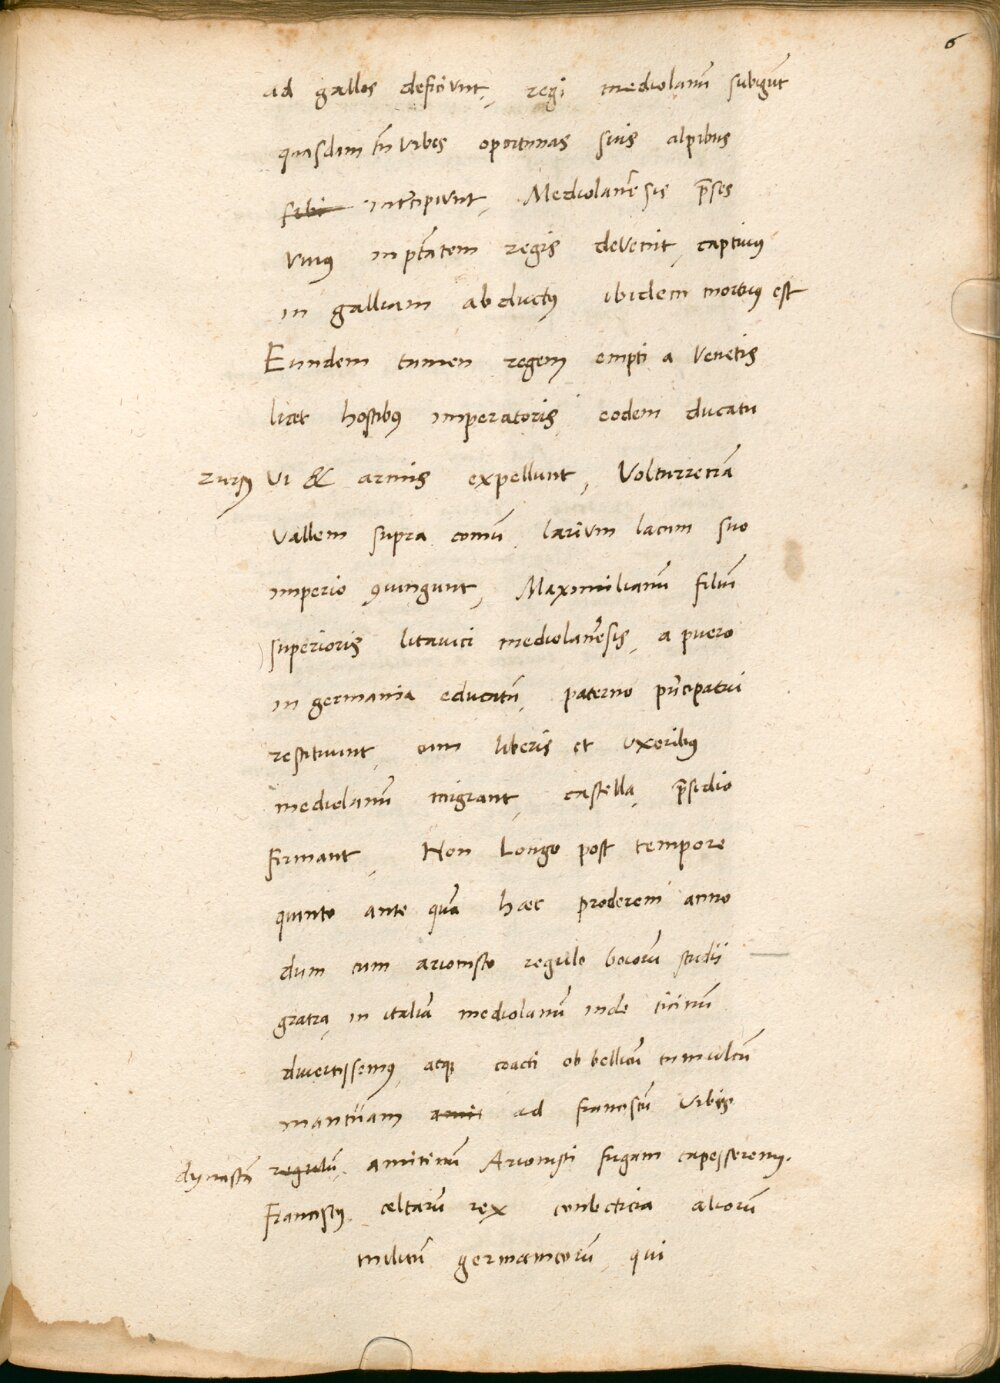 6
ad gallos deficiunt, regi mediolanū subigūt
quasdam tn̄ vrbes oportunas suis alpibus
sibi intercipiunt, Mediolanēsis p̄ses
viuus in ptātem regis deuenit, captiuus
in galliam abductus ibidem mortuus est
Eundem tamen regem empti a Venetis
licet hostibus imperatoris eodem ducatu
rursus vi & armis expellunt, Volturrenā
Vallem supra comū larium lacum suo
imperio 9iungunt, Maximilianū filiū
superioris litauici mediolanēsis, a puero
in germania educatū, paterno prīcipatui
restituunt, cum liberis et uxoribus
mediolanū migrant, castella p̄sidio
firmant, Non Longo post tempore
quinto ante quā haec proderem anno
dum cum ariouisto regulo boiorū studii
gratia in italiā mediolanū inde ticinū
diuertissemus, atque coacti ob bellicū tumultū
mantuam ad franciscū vrbis
dynastā regulū amitinū Ariouisti fugam capesseremus.
Franciscus celtarū rex conducticia aliorū
militū germanicorū, qui